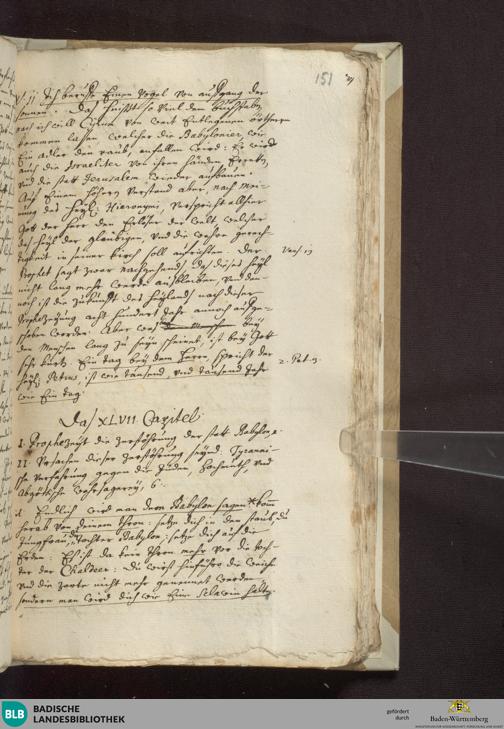 151
v. 11. Ich berüffe Einen Vogel von aufgang der
Sonnen: Das heißt so viel dem buchstaben
nach ich will Cyrum von weit Entlegenen örtheren
kommen lassen, welcher die Babylonier, wie
Ein adler den raub, anfallen wird: Er wird
auch die Israeliter von ihren händen Erretten,
und die statt Jerusalem wieder aufbauen.
Auf Einen höhern Verstand aber, nach mei-
nung des heyl: Hieronymi, verspricht allhier
Gott der herr den Erlöser der welt, welcher
das heyl der glaubigen, und die wahre gerech-
tigkeit in seiner kirch soll aufrichten. Der
Prophet sagt zwar nachgehends, das dieses heyl
Vers. 13
nicht lang mehr werde ausbleiben, und den-
noch ist die zukunfft des heylands nach dieser
Prophezeyung acht hundert Jahr annoch aufge-
schoben worden. Aber was bey
den Menschen lang zu seyn scheinet, ist bey Gott
sehr kurtz. Ein tag bey dem Herrn, spricht der
heyl: Petrus, ist wie tausend, und tausend Jahr
2. Pet. 3.
wie Ein tag.
Das XLVII Capitel.
I. Prophezeyt die Zerstöhrung der statt Babylon.
II. Ursachen dieser Zerstöhrung seynd: Tyranni-
sche verfahrung gegen die Juden, Hochmuth, und
Abgöttische wahrsagerey, 6.
1. Endlich wird man dem Babylon sagen: komm
herab von deinem thron: setze dich in den staub, du
Jungfrau, Tochter Babylon; setze dich auf die
Erden: Es ist da kein thron mehr vor die toch-
ter der Chaldeer: Du wirst hinführo die weiche
und die zarte nicht mehr genennet werden
sondern man wird dich wie Eine sclavin halten.
BLB
BADISCHE
LANDESBIBLIOTHEK
gefördert
durch
Baden-Württemberg